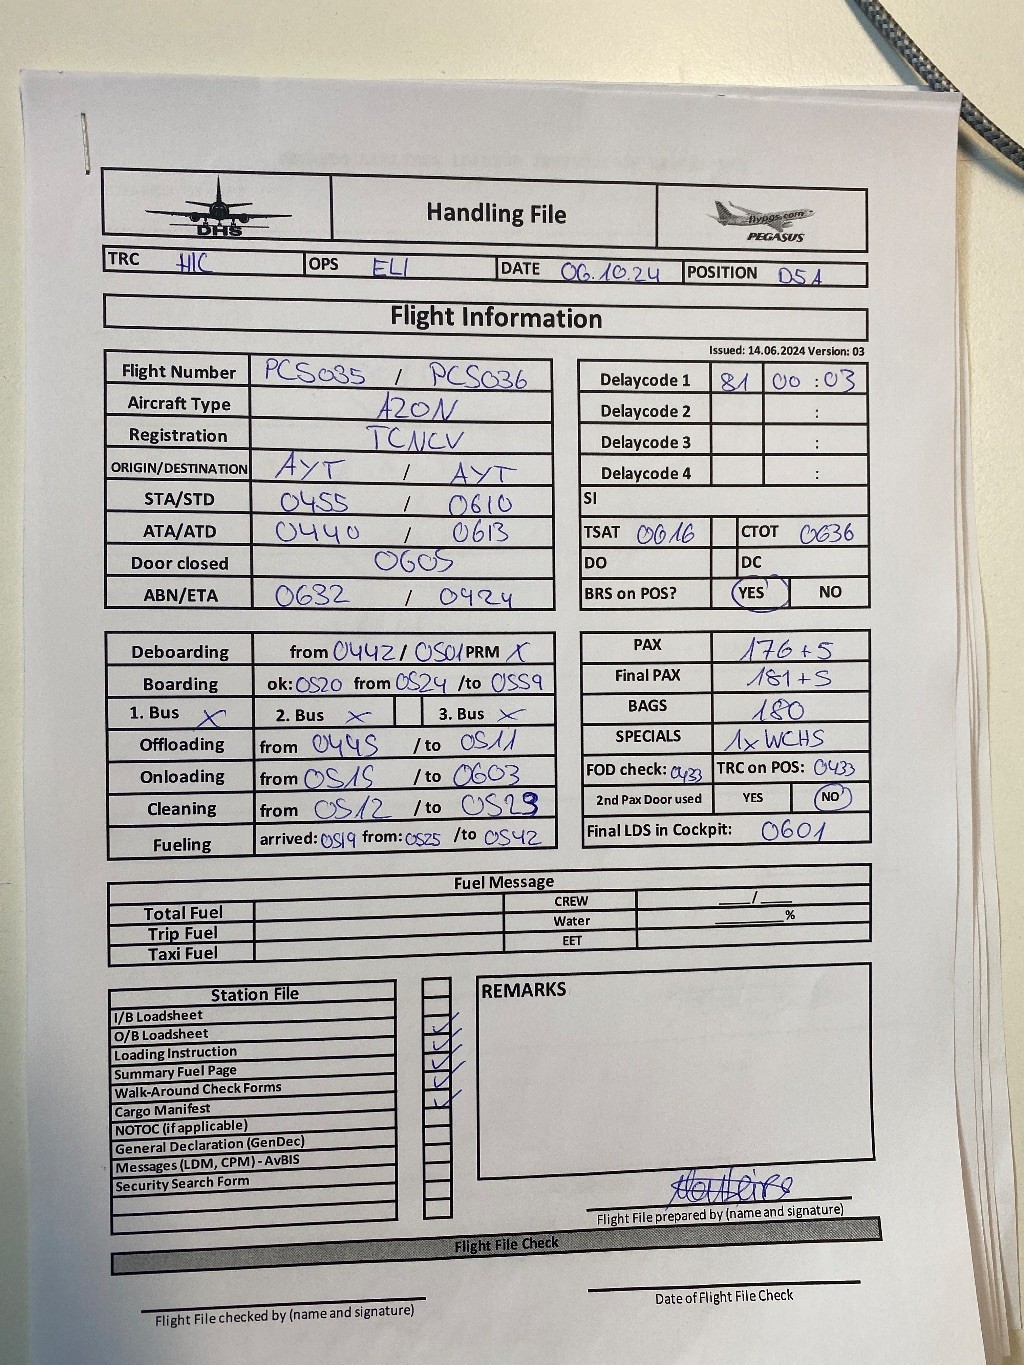 DHS
Handling File
flypgs.com
PEGASUS
TRC HIC OPS ELI DATE 06.10.24 POSITION D5A
Flight Information
Issued: 14.06.2024 Version: 03
Flight Number PC5035 / PC5036
Aircraft Type A20N
Registration TCNCV
ORIGIN/DESTINATION AYT / AYT
STA/STD 0455 / 0610
ATA/ATD 0440 / 0613
Door closed 0605
ABN/ETA 0632 / 0924
Delaycode 1 81 00 : 03
Delaycode 2 :
Delaycode 3 :
Delaycode 4 :
SI
TSAT 0616 CTOT 0636
DO DC
BRS on POS? YES NO
Deboarding from 0442 / 0501 PRM X
Boarding ok: 0520 from 0524 /to 0559
1. Bus X 2. Bus X 3. Bus X
Offloading from 0445 /to 0511
Onloading from 0515 /to 0603
Cleaning from 0512 /to 0523
Fueling arrived: 0519 from: 0525 /to 0542
PAX 176+5
Final PAX 181+5
BAGS 180
SPECIALS 1x WCHS
FOD check: 0433 TRC on POS: 0433
2nd Pax Door used YES NO
Final LDS in Cockpit: 0601
Fuel Message
Total Fuel CREW ___/___
Trip Fuel Water ______%
Taxi Fuel EET
Station File
I/B Loadsheet
O/B Loadsheet
Loading Instruction
Summary Fuel Page
Walk-Around Check Forms
Cargo Manifest
NOTOC (if applicable)
General Declaration (GenDec)
Messages (LDM, CPM) - AvBIS
Security Search Form
REMARKS
Flight File prepared by (name and signature)
Flight File Check
Flight File checked by (name and signature)
Date of Flight File Check